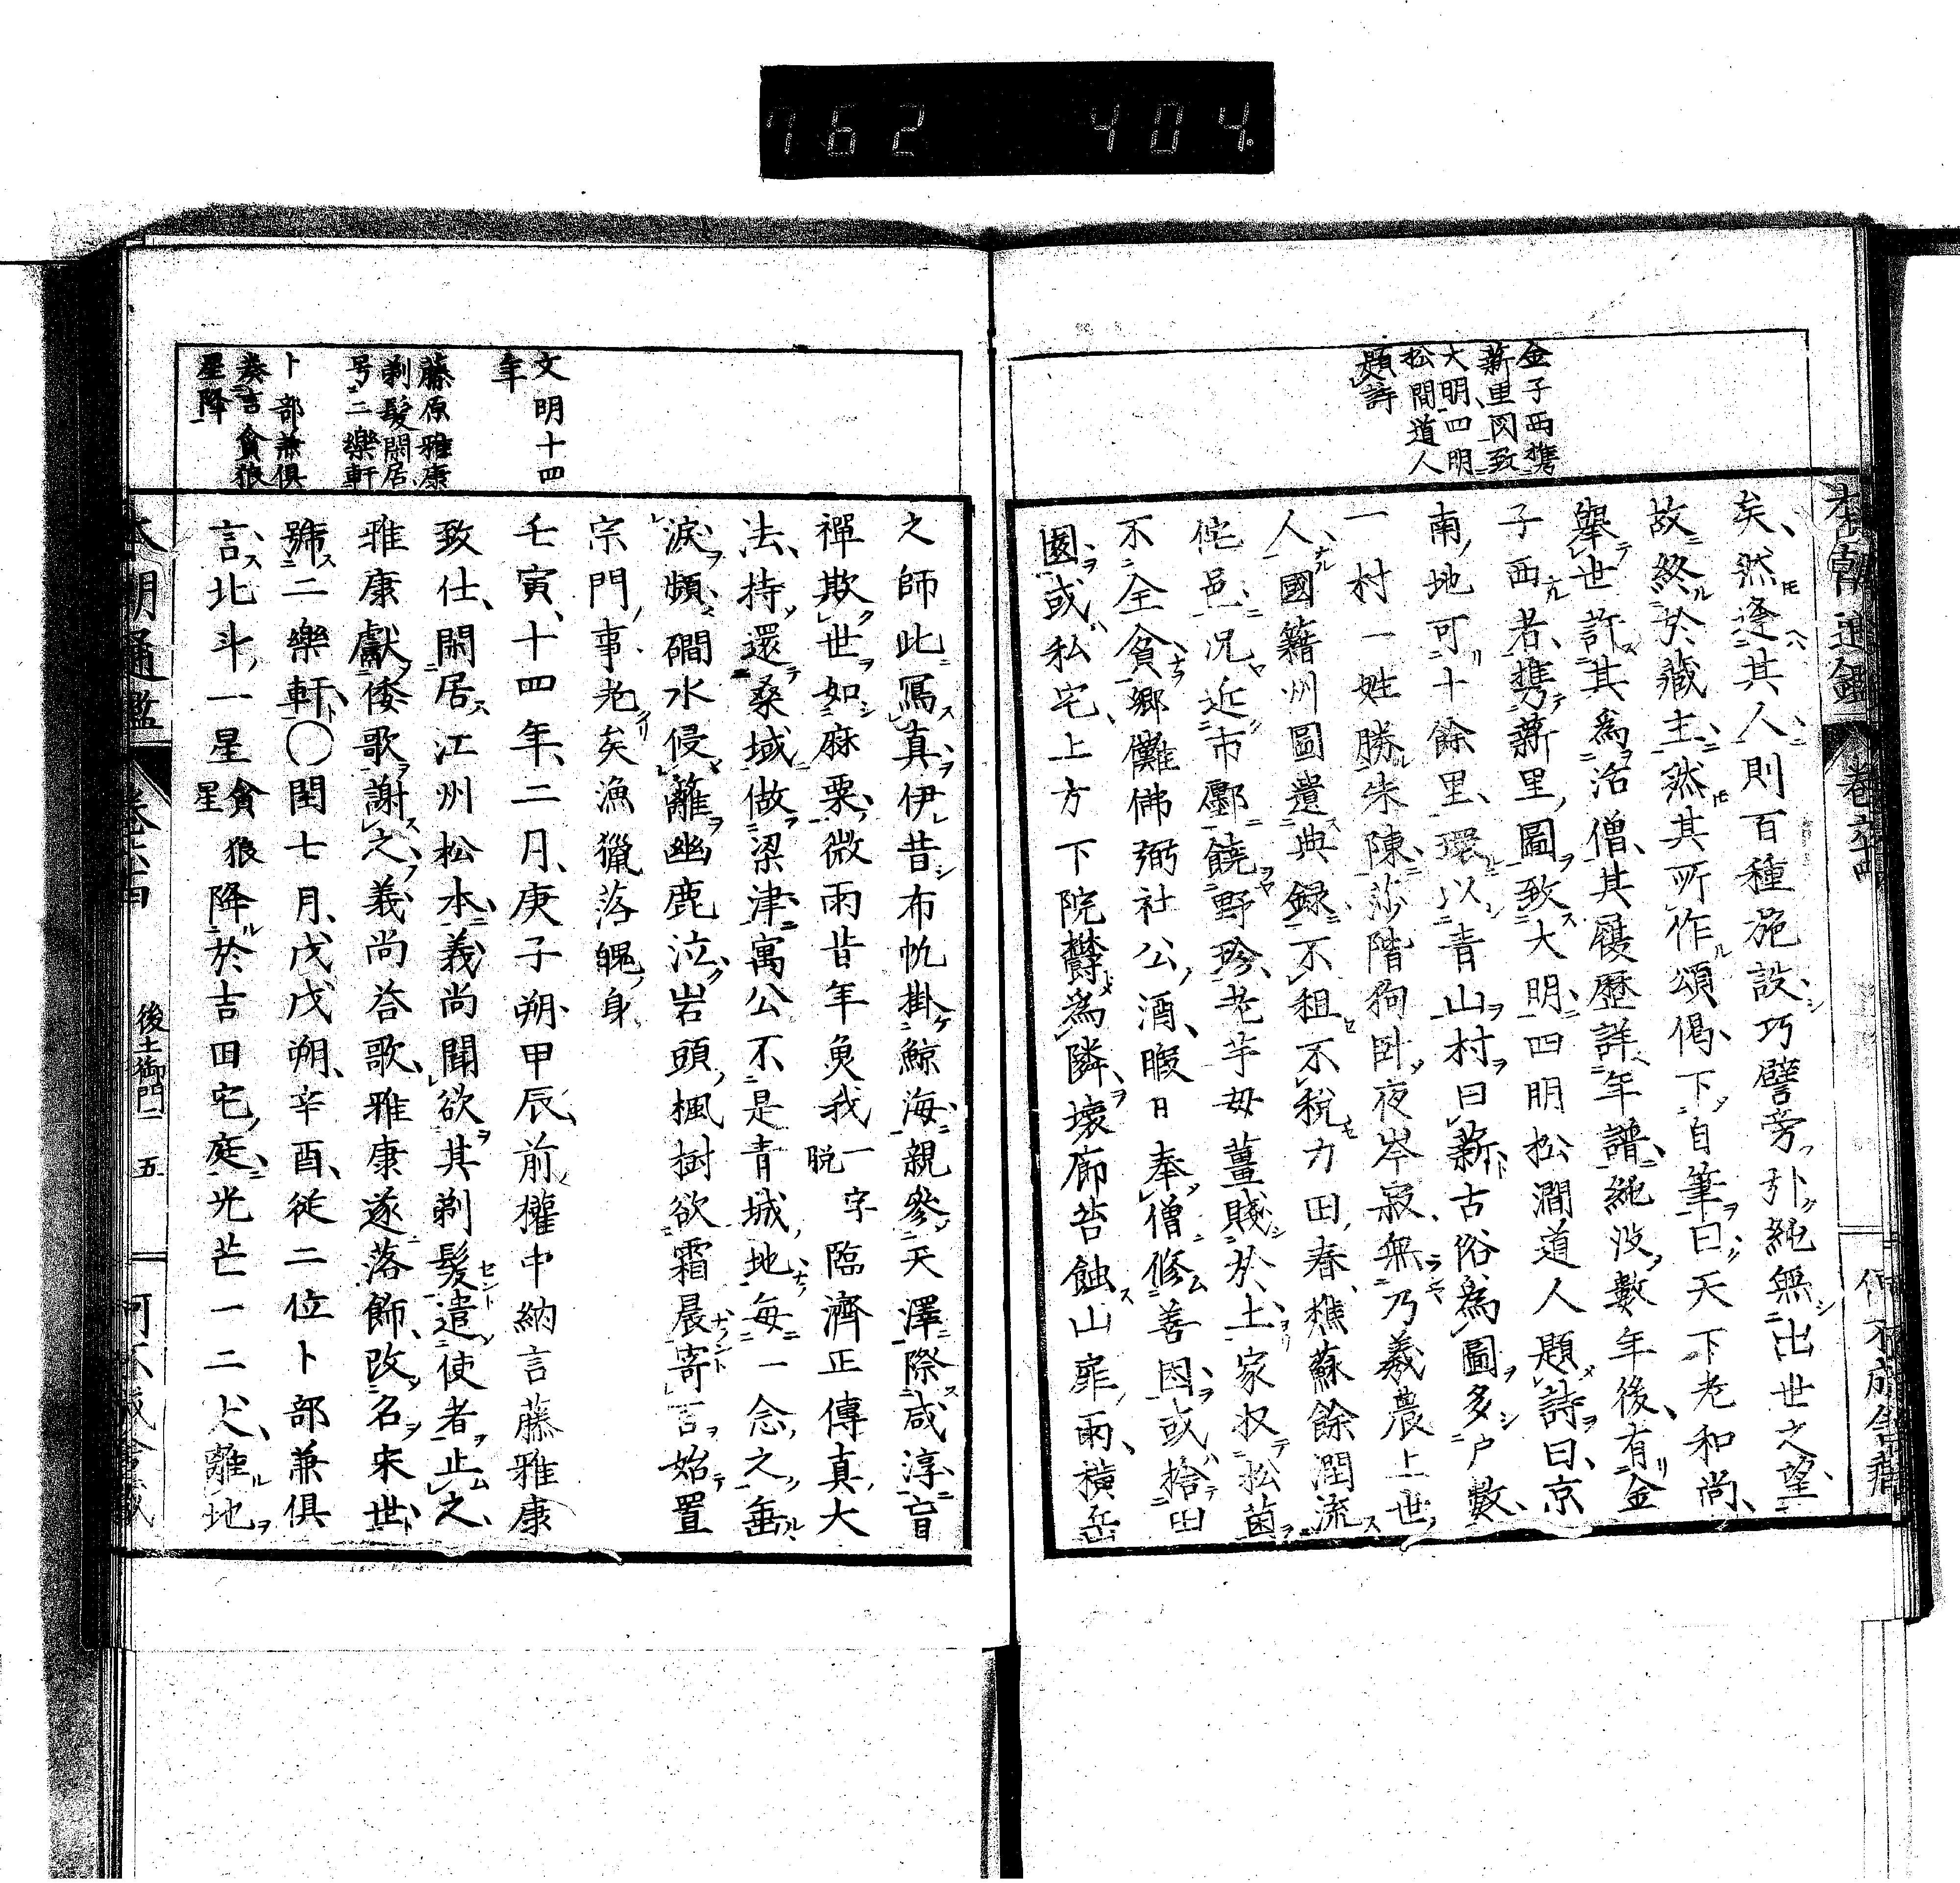 762 404
金子西携
薪里図致
大明四明
松間道人
題詩
矣然逢其人則百種施設巧譬旁引純無出世之望
故終於蔵主然其所作頌偈下自筆曰天下老和尚
舉世許其為活僧其履歴詳年譜純没數年後有金
子西者携薪里圖致大明四明松澗道人題詩曰京
南地可十餘里環以青山村曰薪古俗為圖多戸數
一村一姓勝朱陳莎階狗卧夜岑寂無乃羲農上世
人國籍州圖遺典録不租不税力田春樵蘇餘潤流
侘邑况近市鄽饒野珍老芋母薑賤於土家收松菌
不全貧郷儺佛粥社公酒暇日奉僧修善因或捨田
園或私宅上方下院欝為隣壊廊苔蝕山扉雨横岳
文明十四
年
藤原雅康
剃髪閑居
号二樂軒
卜部兼俱
奏言貪狼
星降
之師此寫真伊昔布帆掛鯨海親参天澤際咸淳盲
禪欺世如麻粟微雨昔年魚我一字脱臨濟正傳真大
法持還桑域做梁津寓公不是青城地毎一念之垂
涙頻礀水侵籬幽鹿泣岩頭楓樹欲霜晨寄言始置
宗門事老矣漁獵落魄身
壬寅十四年二月庚子朔甲辰前權中納言藤雅康
致仕閑居江州松本義尚聞欲其剃髪遣使者止之
雅康獻倭歌謝之義尚答歌雅康遂落飾改名宋世
號二樂軒〇閏七月戊戌朔辛酉従二位卜部兼俱
言北斗一星貪狼星降於吉田宅庭光芒一二丈離地
本朝通鑑 卷六十四 後土御門二 五